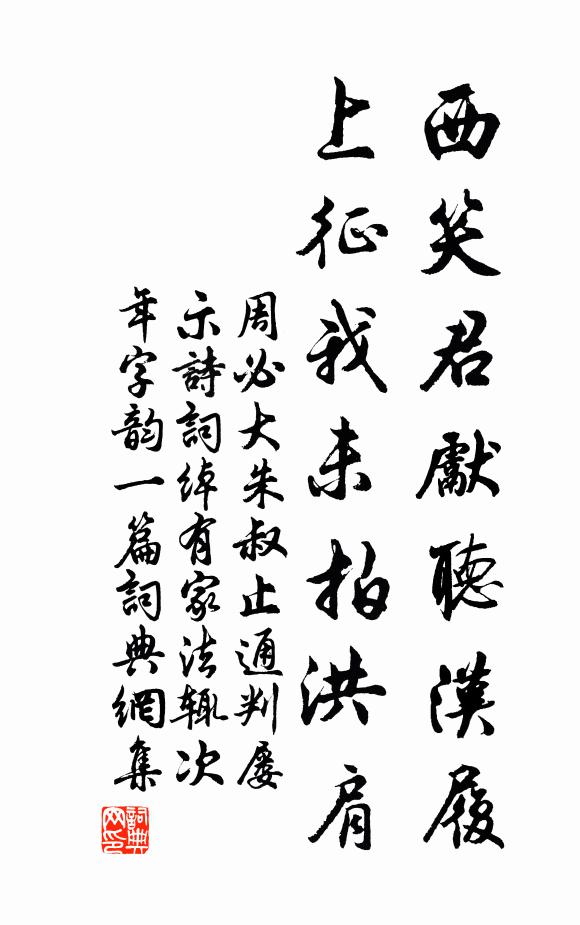 西笑君獻聽漢履
上征我未拍洪肩
周必大朱叔止通判屡
示詩詞綽有家法輒次
年字韵一篇詞典網集
詞典
网印